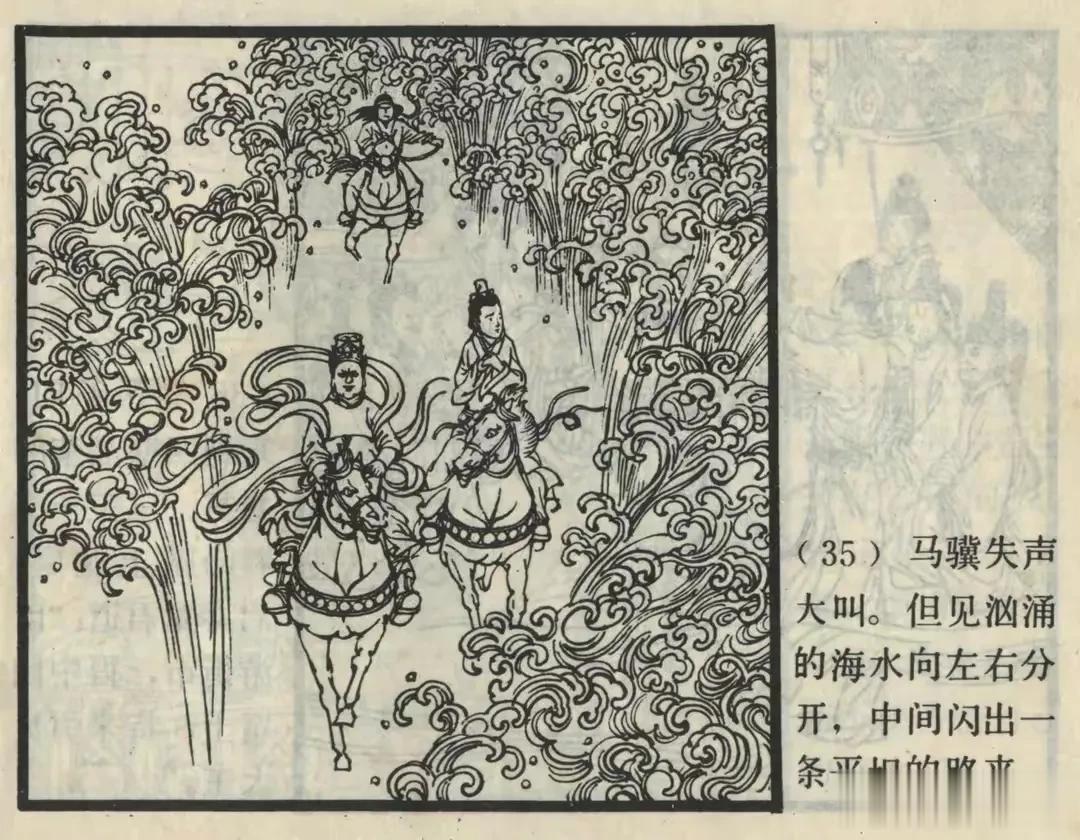 （35）马骥失声
大叫。但见汹涌
的海水向左右分
开，中间闪出一
条平坦的路来